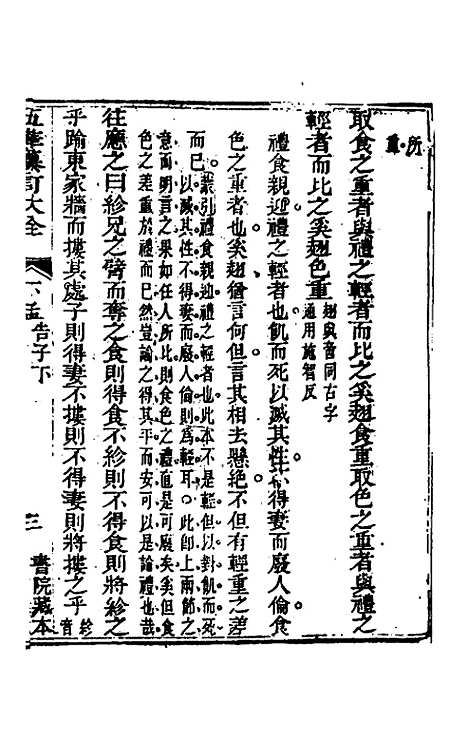 所重
取食之重者與禮之輕者而比之奚翅食重取色之重者與禮之
輕者而比之奚翅色重
翅與啻同古字
通用施智反
禮食親迎禮之輕者也飢而死以滅其性不得妻而廢人倫食
色之重者也奚翅猶言何但言其相去懸絕不但有輕重之差
而已
叢引禮食親迎禮之輕者也此本不是輕但以對飢而死
以滅其性不得妻而廢人倫則爲輕耳○此卽上兩節之
意而明言之果如任人所比則食色之禮直是可廢矣但食
色之差重於禮而已然豈論之得其平而安可以是論禮也哉
往應之曰紾兄之臂而奪之食則得食不紾則不得食則將紾之
乎踰東家牆而摟其處子則得妻不摟則不得妻則將摟之乎
紾音
五華纂訂大全
下孟
告子下
三
書院藏本